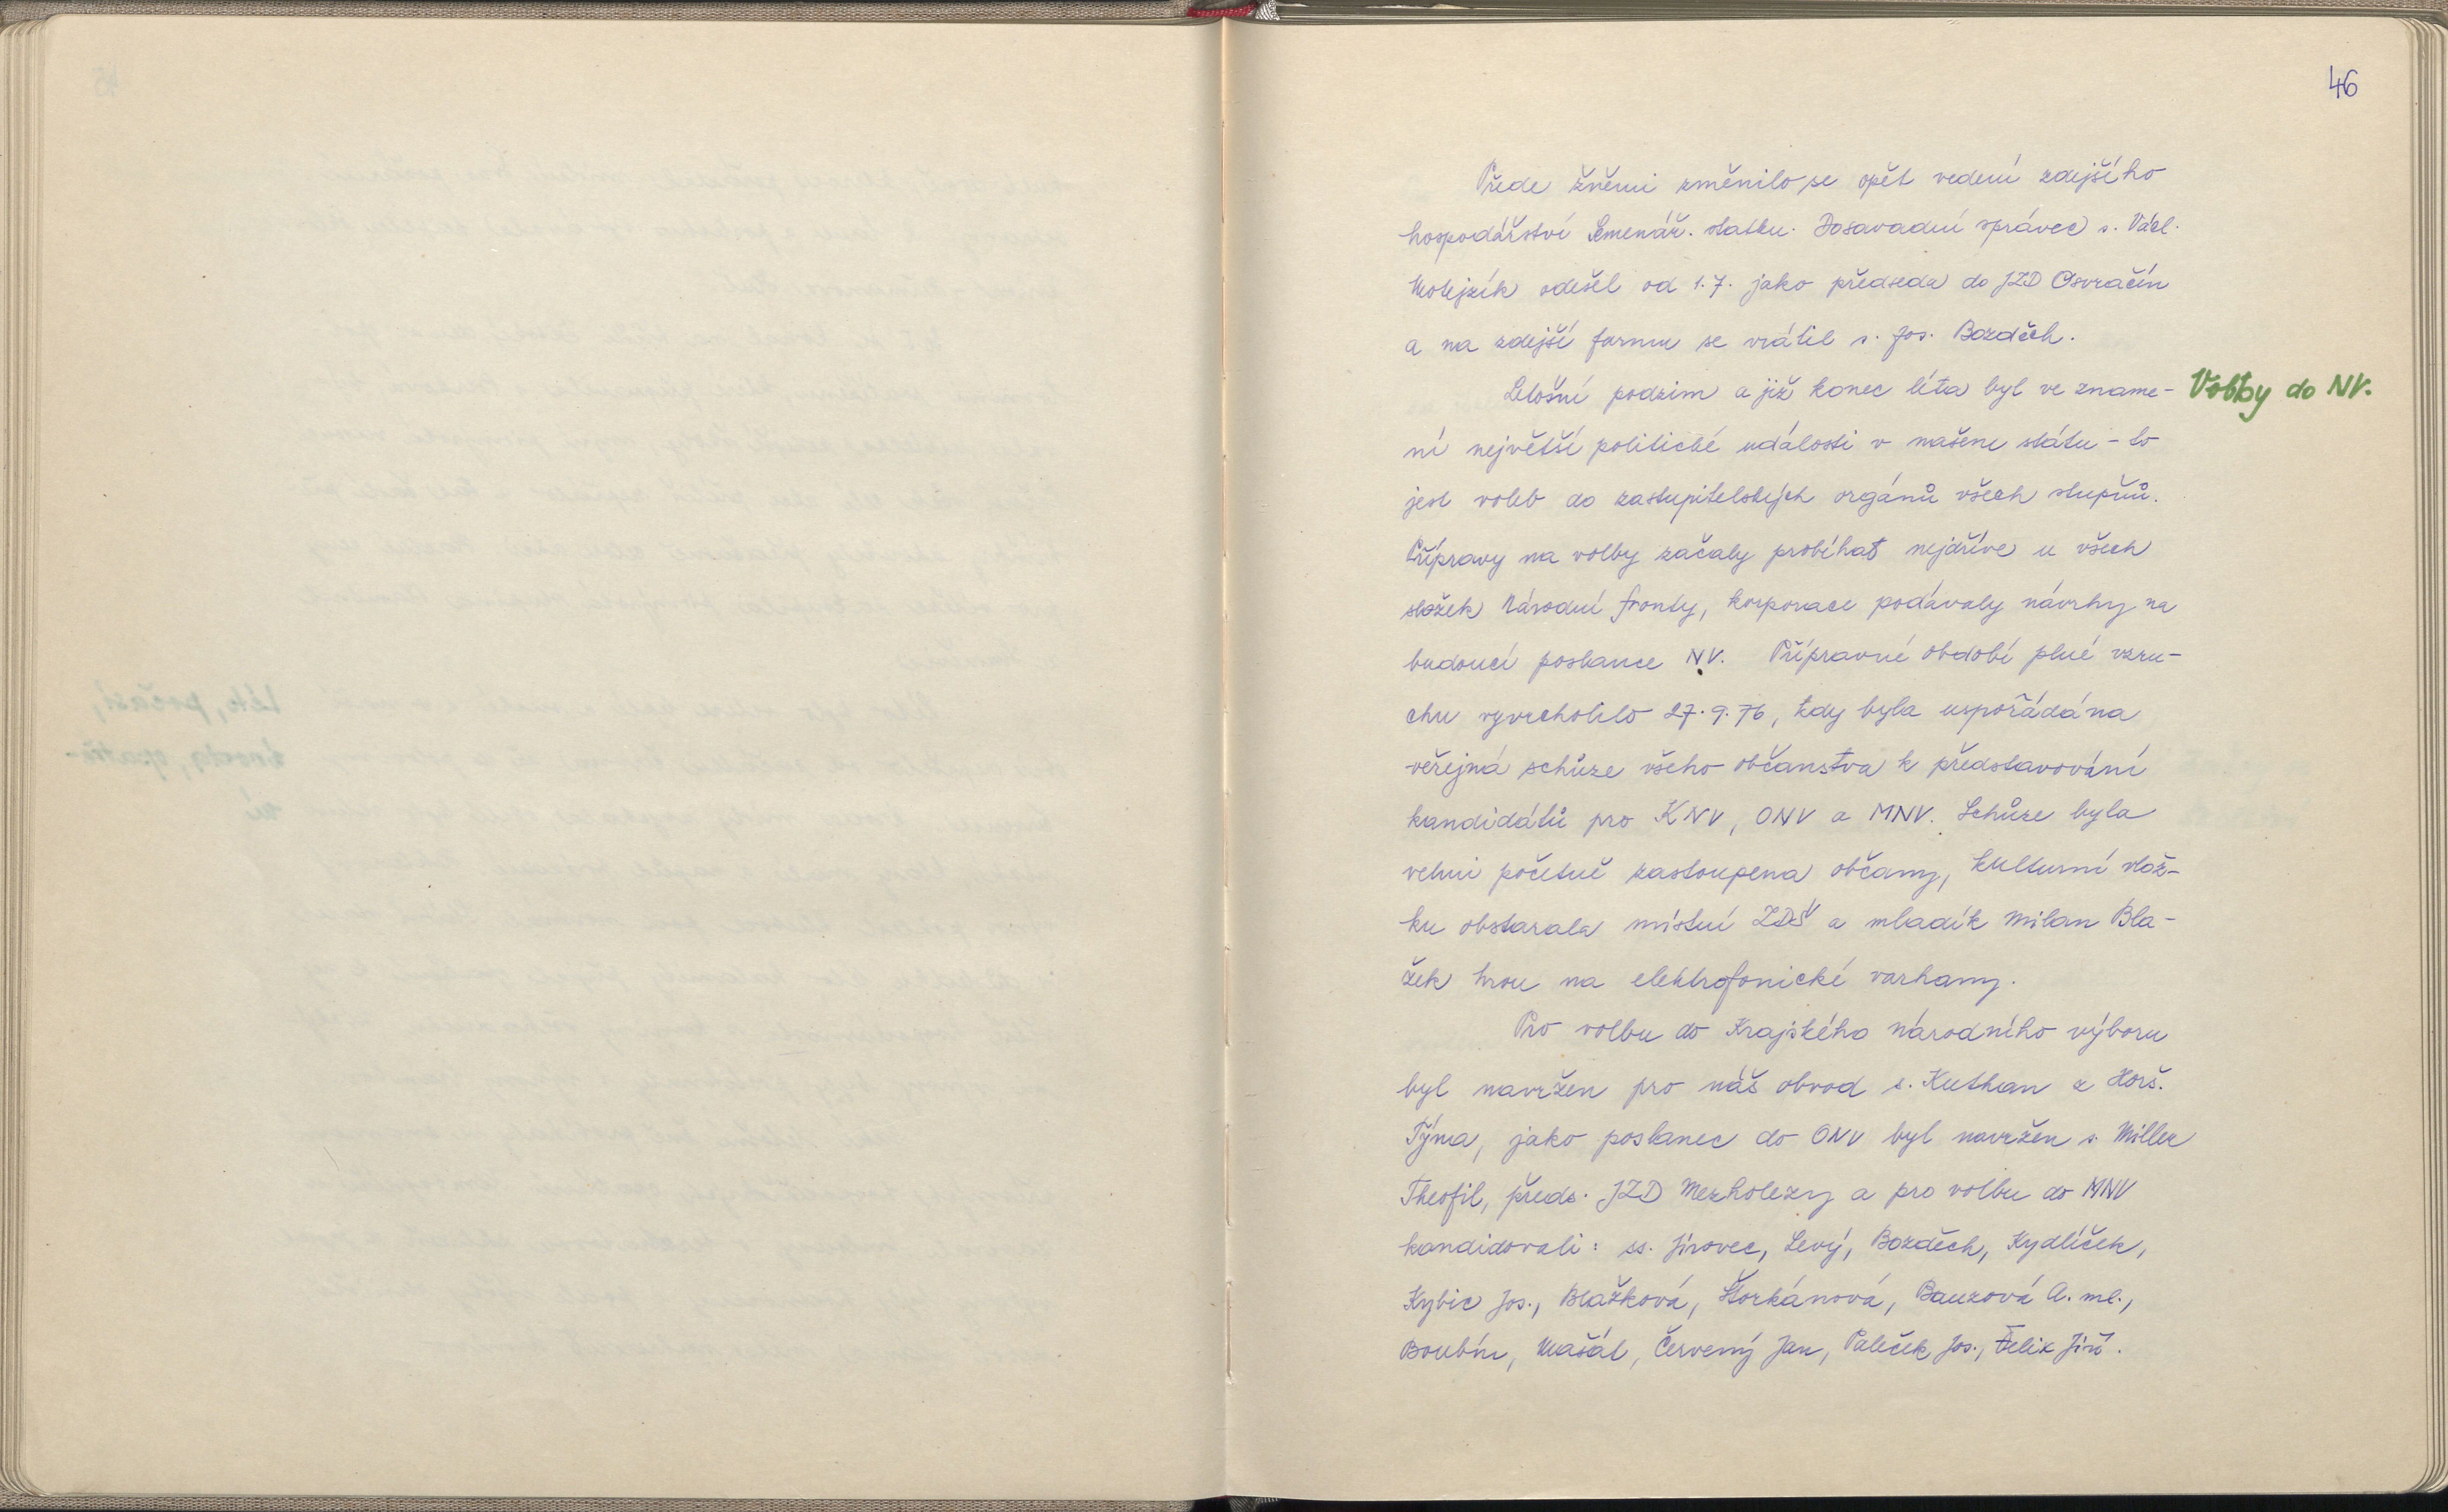 46
Přede žněmi změnilo se opět vedení zdejšího
hospodářství Semenář. statku. Dosavadní správce s. Václ.
Motejzík odešel od 1.7. jako předseda do JZD Osvračín
a na zdejší farmu se vrátil s. Jos. Bozděch.
Letošní podzim a již konec léta byl ve zname-
Volby do NV.
ní největší politické události v našem státu - to
jest voleb do zastupitelských orgánů všech stupňů.
Přípravy na volby začaly probíhat nejdříve u všech
složek Národní fronty, korporace podávaly návrhy na
budoucí poslance NV. Přípravné období plné vzru-
chu vyvrcholilo 27.9.76, kdy byla uspořádána
veřejná schůze všeho občanstva k představování
kandidátů pro KNV, ONV a MNV. Schůze byla
velmi početně zastoupena občany, kulturní vlož-
ku obstarala místní ZDŠ a mladík Milan Bla-
žek hrou na elektrofonické varhany.
Pro volbu do Krajského národního výboru
byl navržen pro náš obvod s. Kuthan z Horš.
Týna, jako poslanec do ONV byl navržen s. Miller
Theofil, předs. JZD Mezholezy a pro volbu do MNV
kandidovali: ss. Jírovec, Levý, Bozděch, Kydlíček,
Kybic Jos., Blažková, Štorkánová, Bauzová A. ml.,
Boubín, Mašát, Červený Jan, Paleček Jos., Felix Jiří.